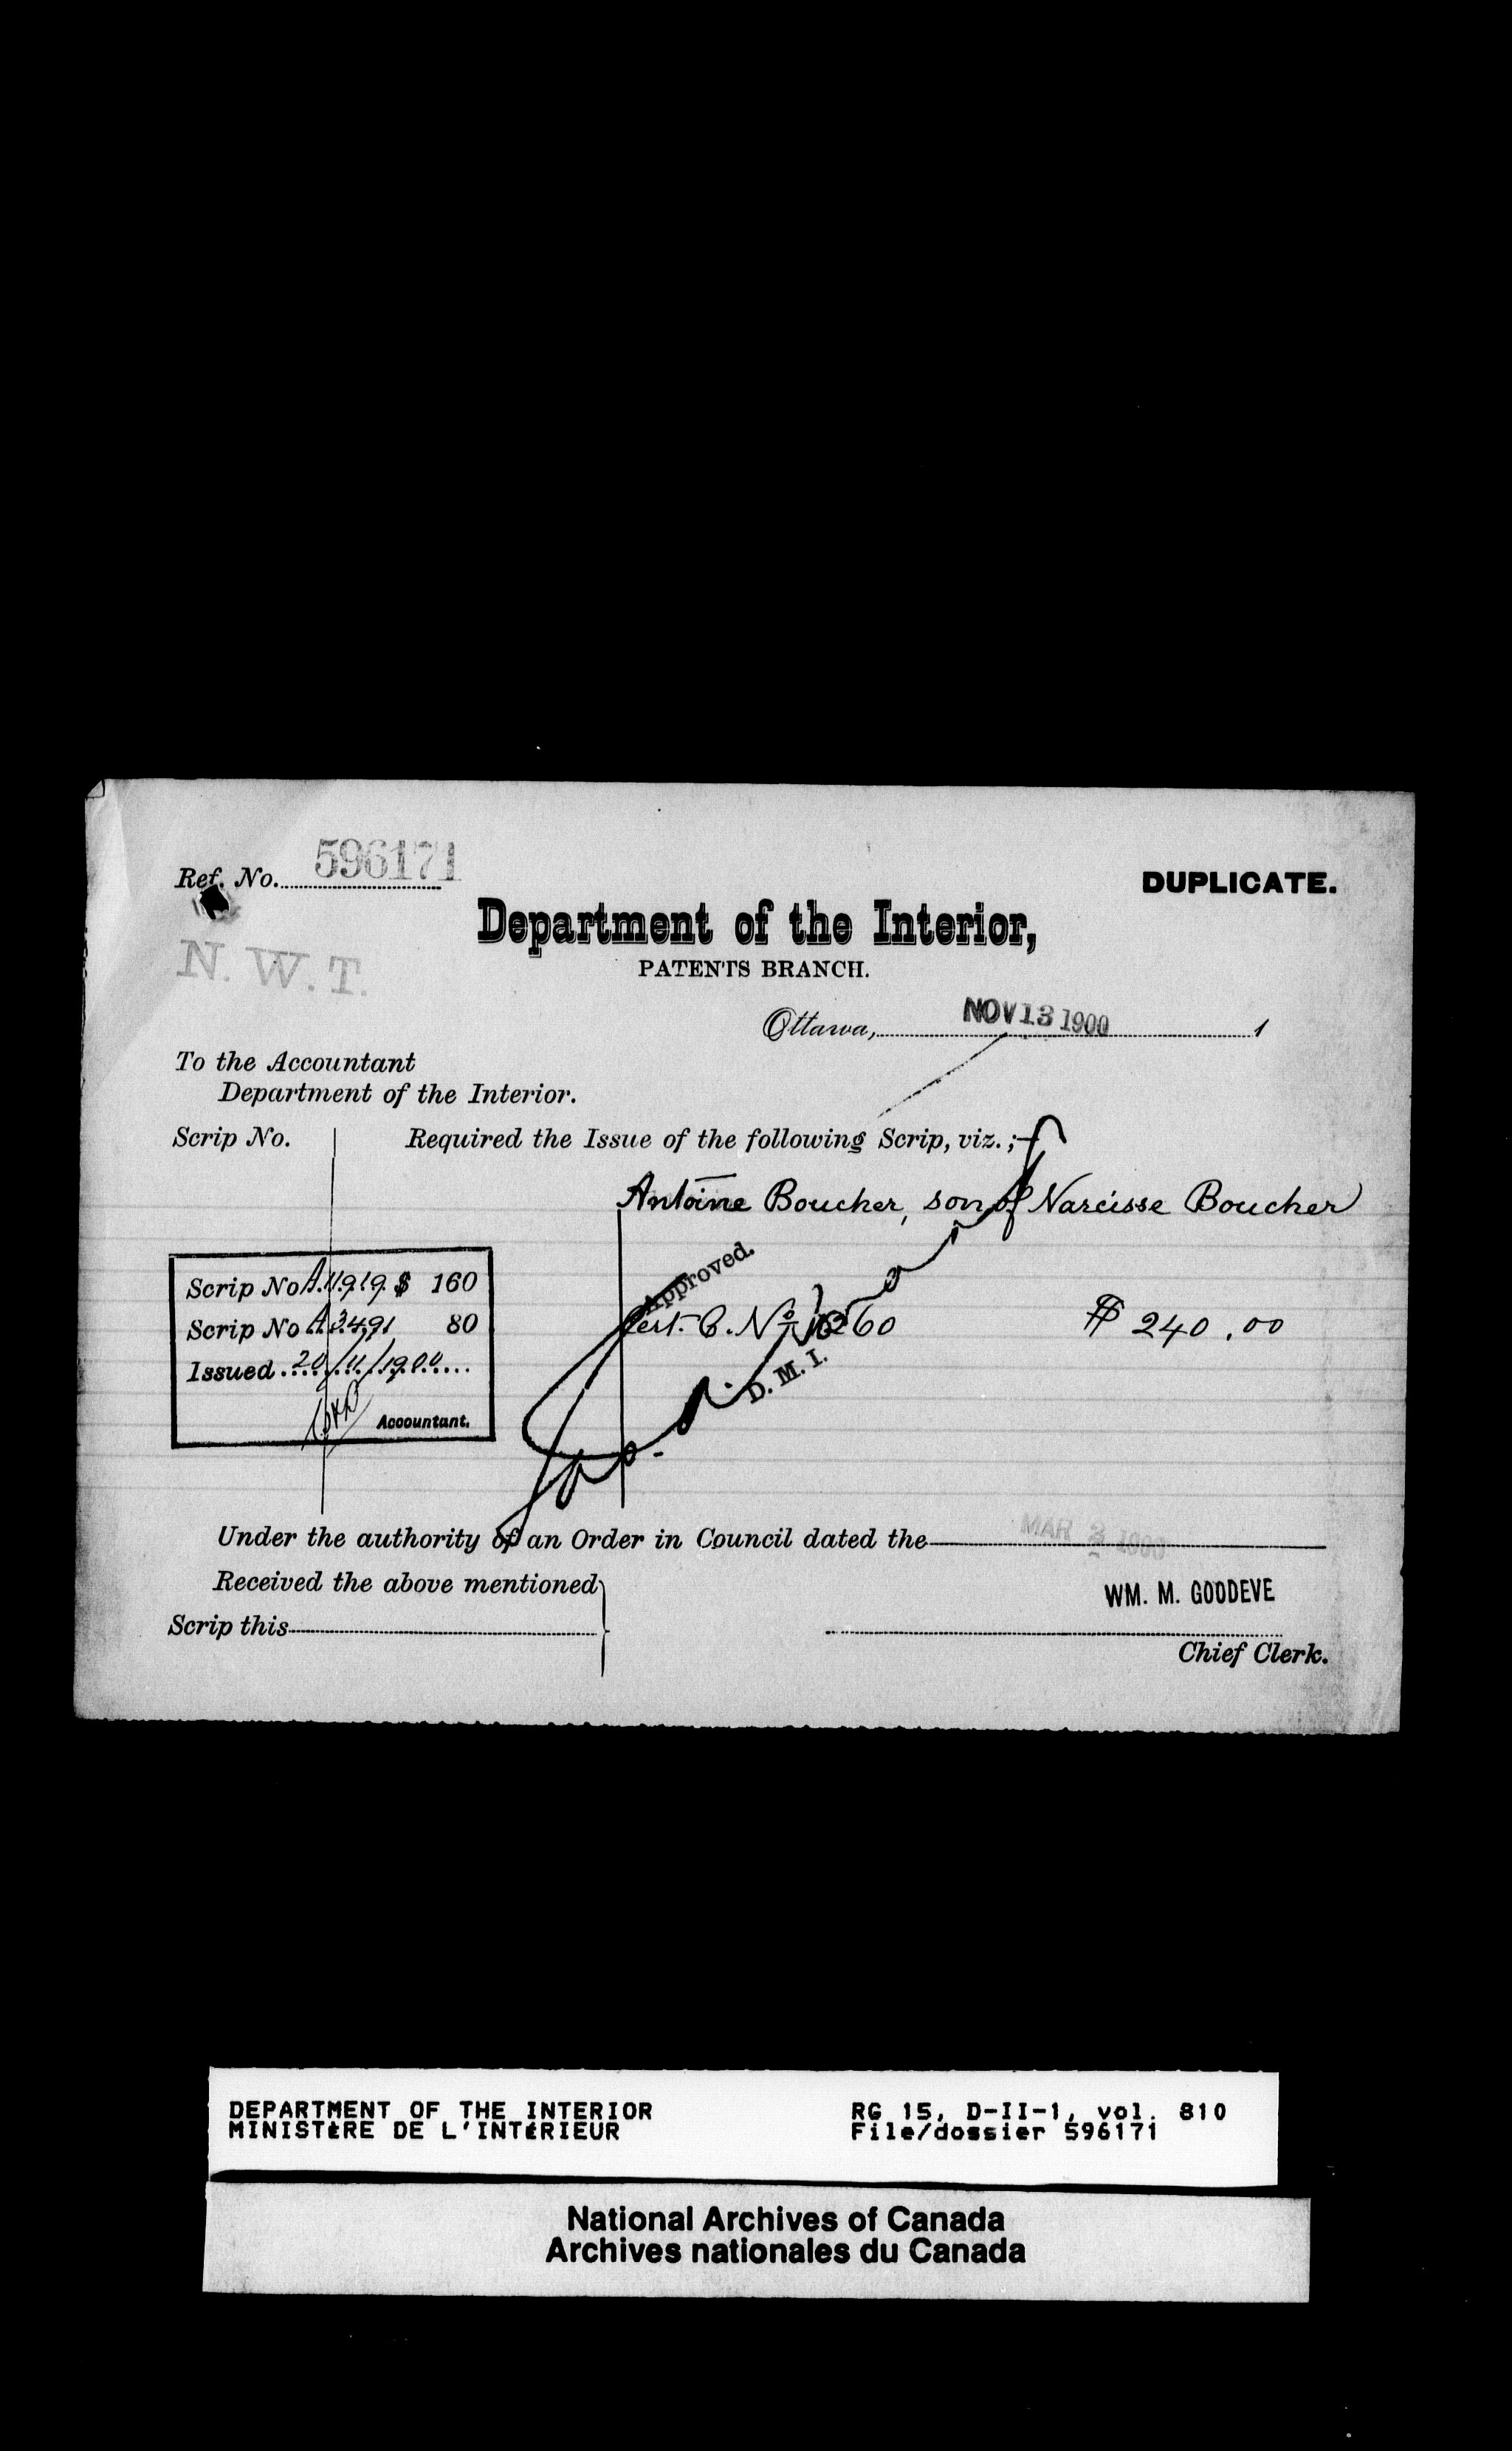 Ref. No. 596171
DUPLICATE.
Department of the Interior,
N. W. T.
PATENTS BRANCH.
Ottawa, NOV 13 1900 1
To the Accountant
Department of the Interior.
Scrip No. Required the Issue of the following Scrip, viz.;
Antoine Boucher, son of Narcisse Boucher
Approved.
Scrip No A.11919. $ 160
Scrip No A.3491 80
Cert. C. No 1260 $ 240.00
Issued 20/11/1900
D. M. I.
Accountant.
Under the authority of an Order in Council dated the MAR 2 1900
Received the above mentioned
WM. M. GOODEVE
Scrip this
Chief Clerk.
DEPARTMENT OF THE INTERIOR RG 15, D-II-1, vol. 810
MINISTÈRE DE L'INTÉRIEUR File/dossier 596171
National Archives of Canada
Archives nationales du Canada